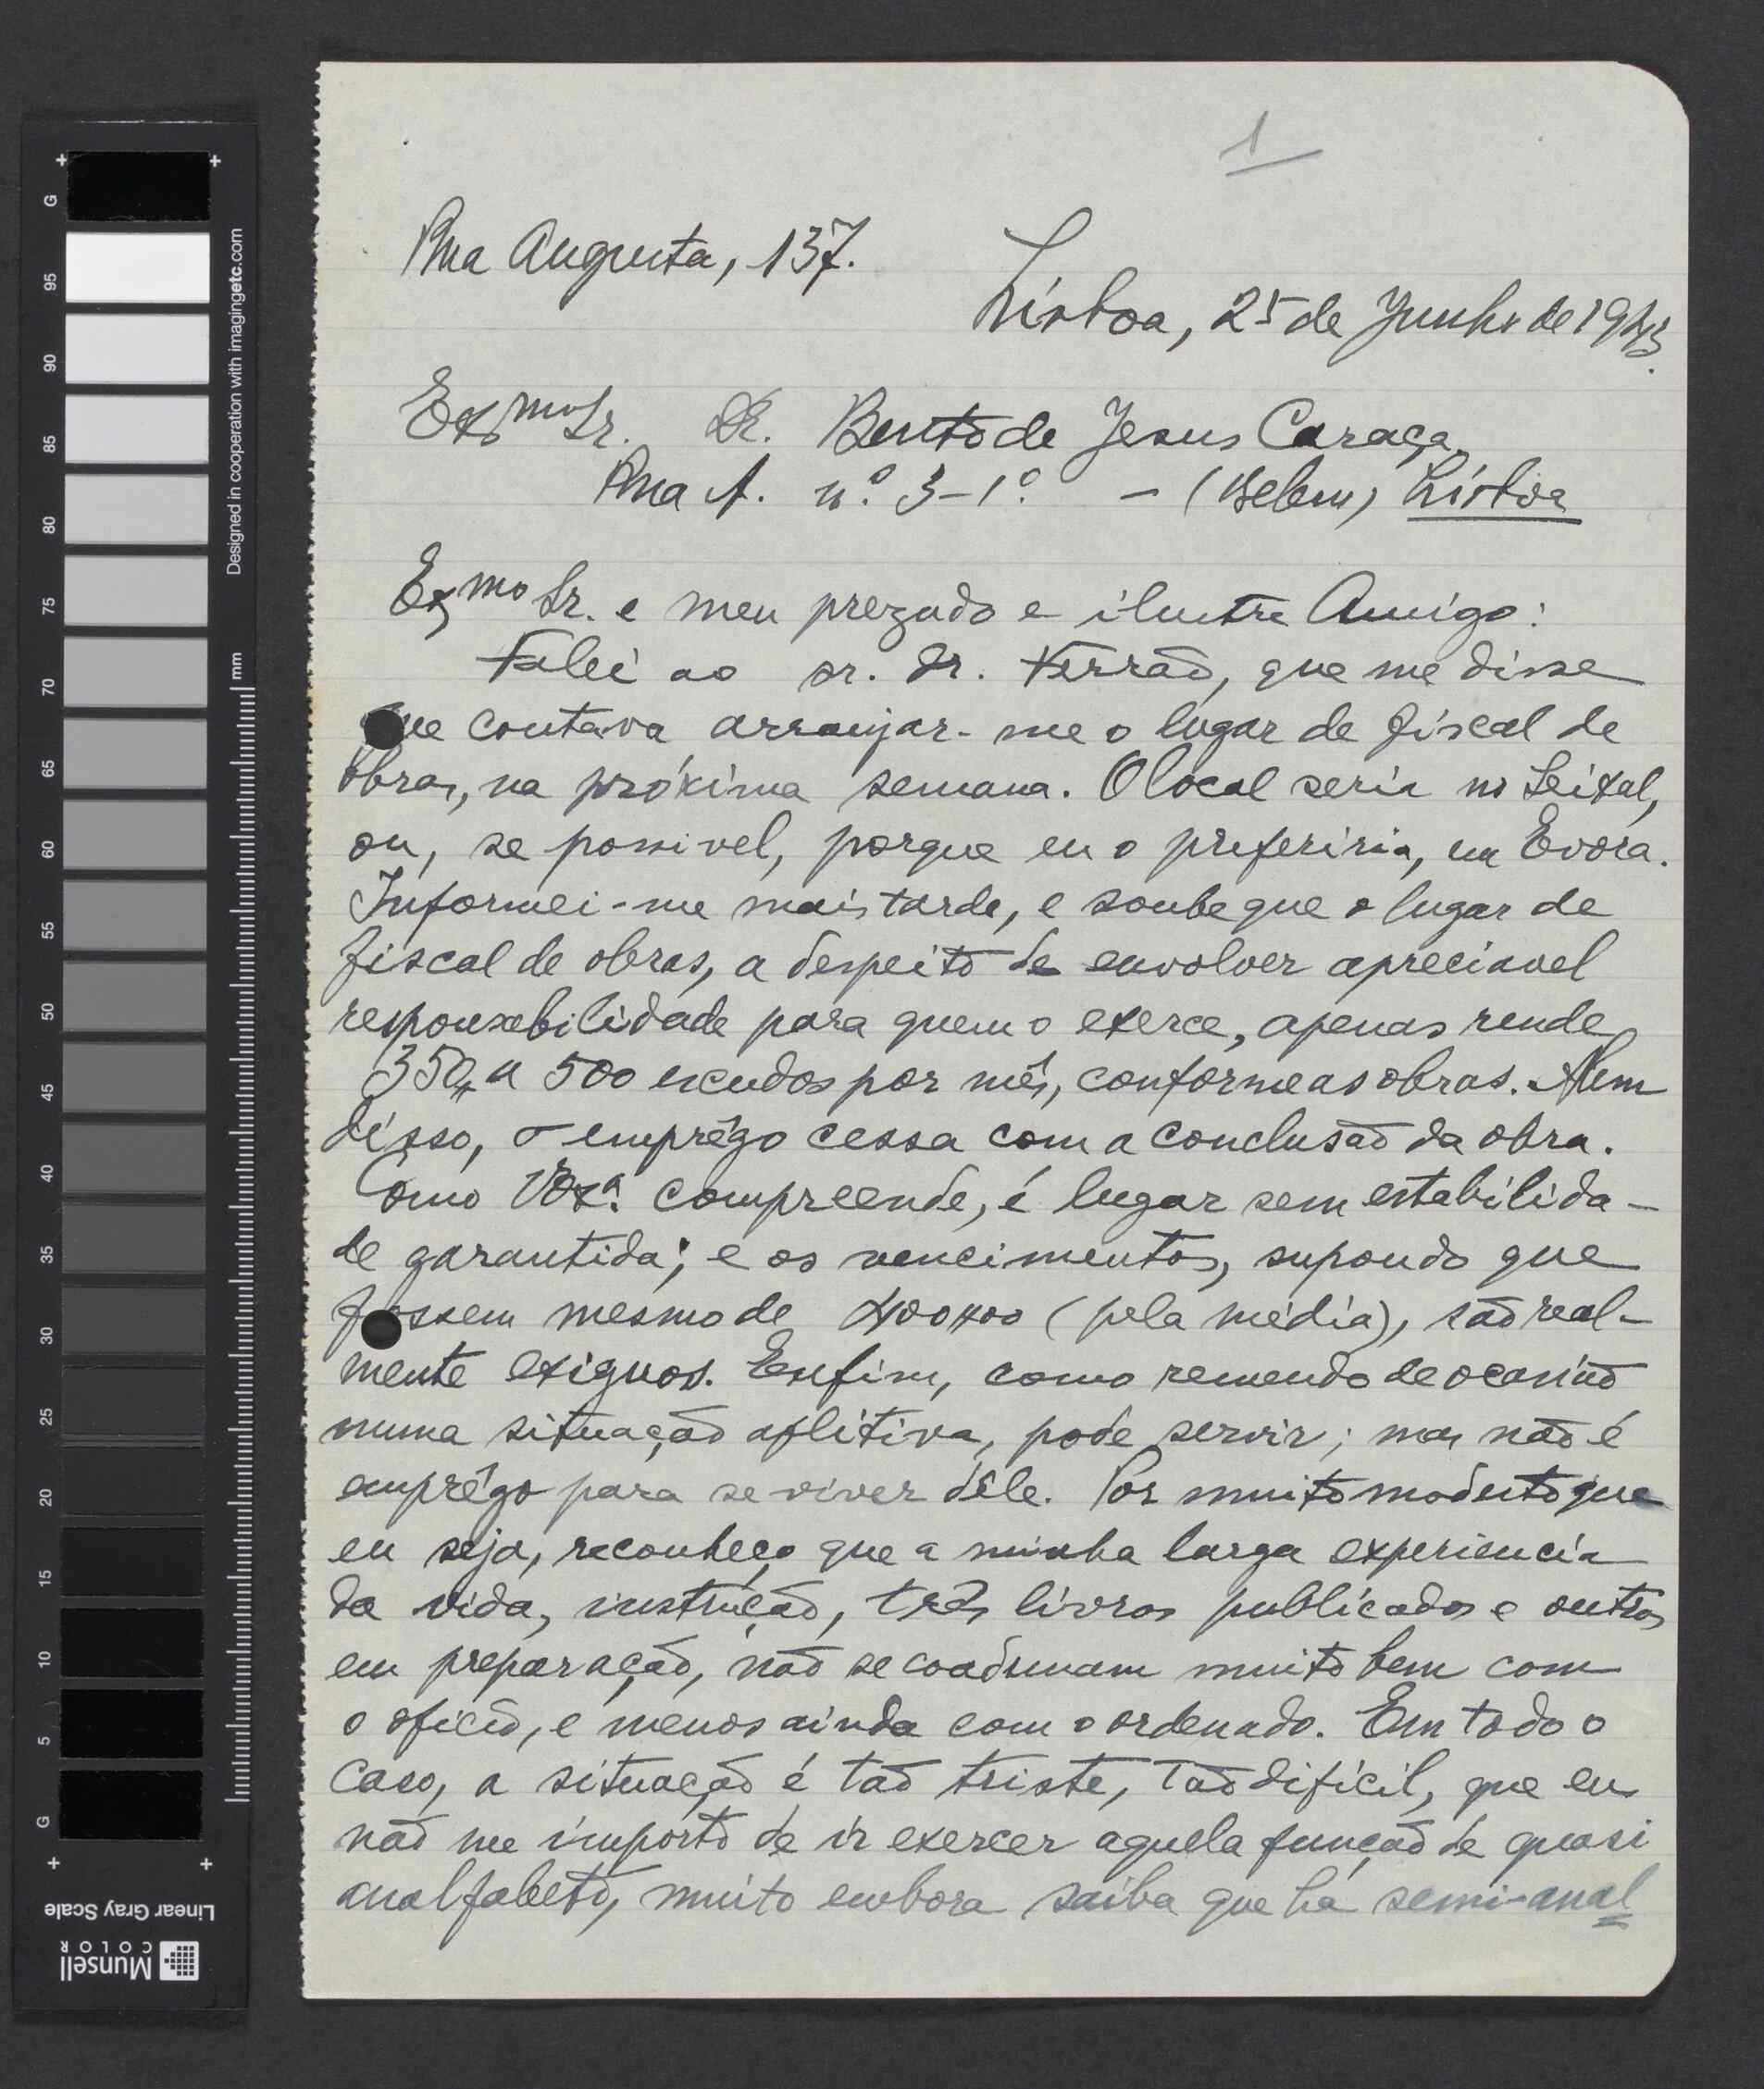 1
Rua Augusta, 137.
Lisboa, 25 de Junho de 1943.
Exmo Sr. Dr. Bento de Jesus Caraça,
Rua A. nº 3-1º - (Belem) Lisboa
Exmo Sr. e meu prezado e ilustre Amigo:
Falei ao sr. dr. Ferrão, que me disse
que contava arranjar-me o lugar de fiscal de
obras, na próxima semana. O local seria no Seixal,
ou, se possivel, porque eu o preferiria, em Evora.
Informei-me mais tarde, e soube que o lugar de
fiscal de obras, a despeito de envolver apreciavel
responsabilidade para quem o exerce, apenas rende
350, a 500 escudos por mês, conforme as obras. Alem
disso, o emprêgo cessa com a conclusão da obra.
Como V. Exª. compreende, é lugar sem estabilida-
de garantida; e os vencimentos, supondo que
fossem mesmo de 400$00 (pela média), são real-
mente exiguos. Enfim, como remendo de ocasião
numa situação aflitiva, pode servir; mas não é
emprêgo para se viver dêle. Por muito modesto que
eu seja, reconheço que a minha larga experiencia
da vida, instrução, três livros publicados e outros
em preparação, não se coadunam muito bem com
o oficio, e menos ainda com o ordenado. Em todo o
caso, a situação é tão triste, tão dificil, que eu
não me importo de ir exercer aquela função de quasi
analfabeto, muito embora saiba que há semi-anal
Designed in cooperation with imagingetc.com
mm
G 95 90 85 80 75 70 65 60 55 50 45 40 35 30 25 20 15 10 5 G
Linear Gray Scale
Munsell
COLOR